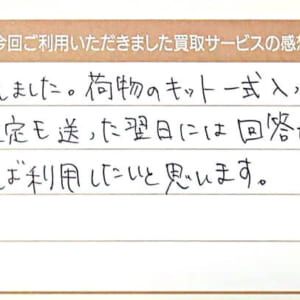 今回ご利用いただきました買取サービスの感
しました。荷物のキット一式入っ
定も送った翌日には回答
ば利用したいと思います。